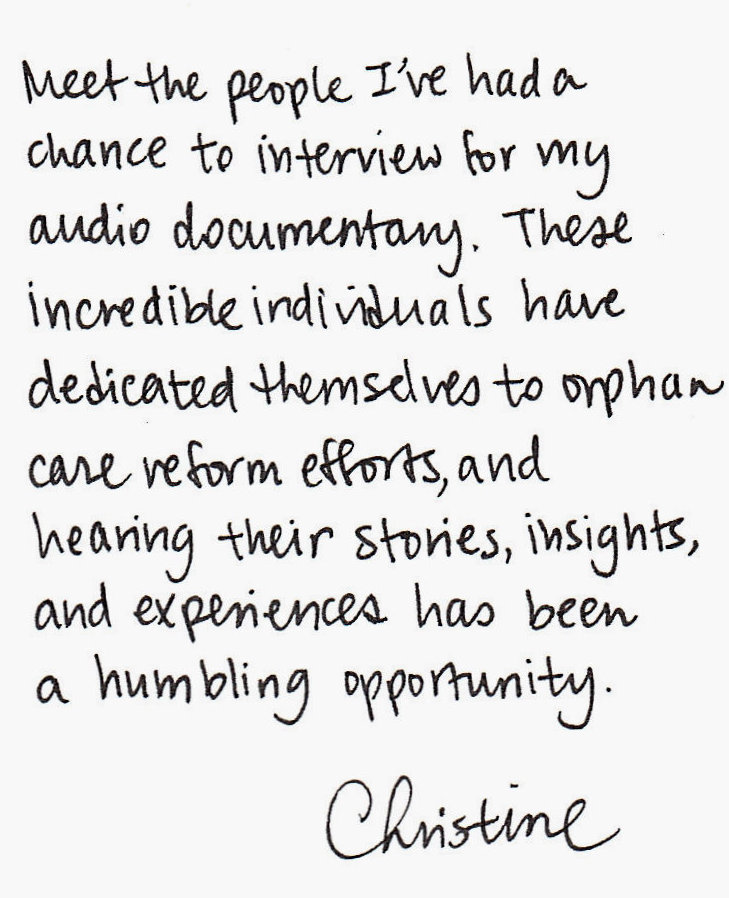 Meet the people I've had a
chance to interview for my
audio documentary. These
incredible individuals have
dedicated themselves to orphan
care reform efforts, and
hearing their stories, insights,
and experiences has been
a humbling opportunity.
Christine